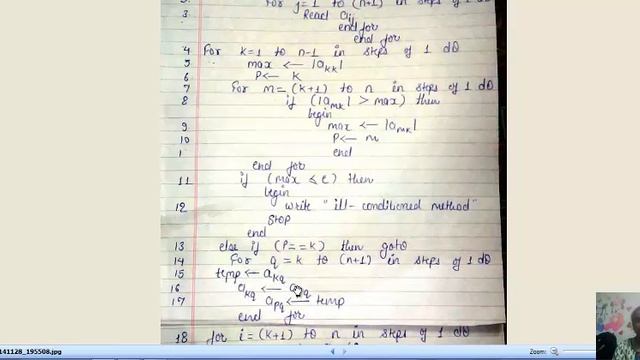 2. For j=1 to (n+1) in steps of 1 do
3 Read aij
endfor
end for
4 For k=1 to n-1 in steps of 1 do
5 max ← |akk|
6 P ← k
7 For m=(k+1) to n in steps of 1 do
8 if (|amk| > max) then
begin
9 max ← |amk|
10 P ← m
1 end
end for
11 if (max ≤ ε) then
begin
12 write "ill-conditioned method"
STOP
end
13 else if (P==k) then goto
14 For q = k to (n+1) in steps of 1 do
15 temp ← akq
16 akq ← apq
17 apq ← temp
end for
18 for i=(k+1) to n in steps of 1 do
141128_195508.jpg
Zoom: